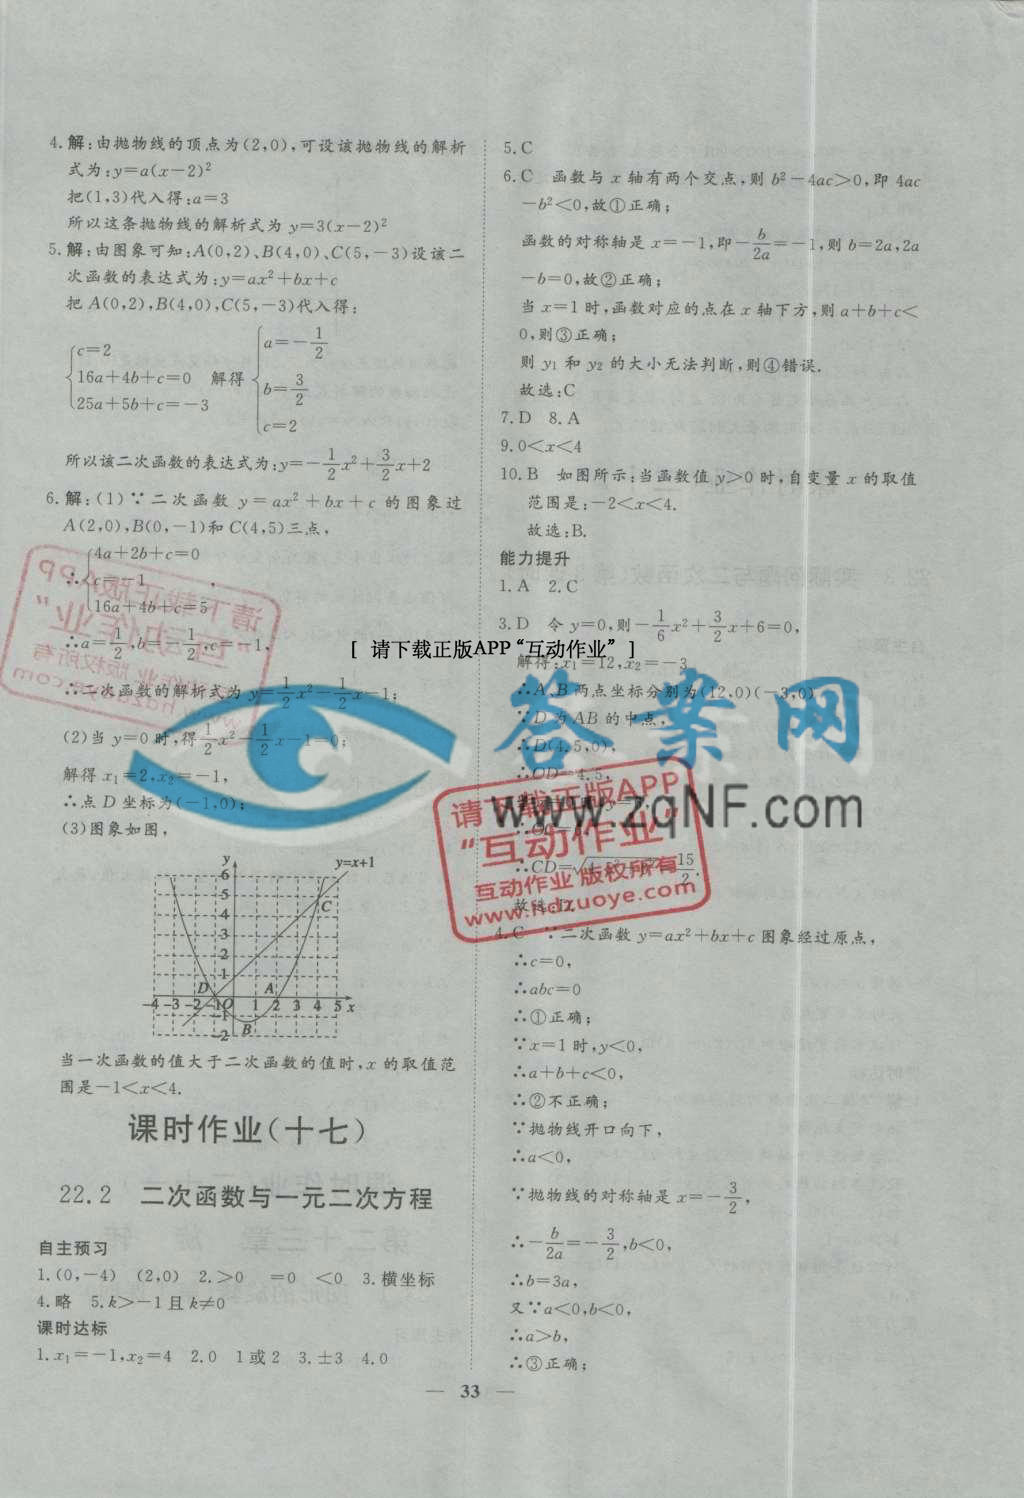 4.解:由抛物线的顶点为(2,0),可设该抛物线的解析
式为:y=a(x-2)²
把(1,3)代入得:a=3
所以这条抛物线的解析式为 y=3(x-2)²
5.解:由图象可知:A(0,2),B(4,0)、C(5,-3)设该二
次函数的表达式为:y=ax²+bx+c
把 A(0,2),B(4,0),C(5,-3)代入得:
{c=2
16a+4b+c=0
25a+5b+c=-3
解得
{a=-1/2
b=3/2
c=2
所以该二次函数的表达式为:y=-1/2x²+3/2x+2
6.解:(1)∵二次函数 y=ax²+bx+c 的图象过
A(2,0),B(0,-1)和C(4,5)三点,
∴{4a+2b+c=0
c=-1
16a+4b+c=5
,
∴a=1/2,b=-1/2,c=-1,
∴二次函数的解析式为 y=1/2x²-1/2x-1;
(2)当 y=0时,得1/2x²-1/2x-1=0;
解得 x₁=2,x₂=-1,
∴点 D 坐标为(-1,0);
(3)图象如图,
y
y=x+1
6
5
4
3
2
1
C
D
A
-4 -3 -2 -1 O 1 2 3 4 5 x
-1
-2
B
当一次函数的值大于二次函数的值时,x 的取值范
围是-1<x<4.
课时作业(十七)
22.2 二次函数与一元二次方程
自主预习
1.(0,-4) (2,0) 2.>0 =0 <0 3.横坐标
4.略 5.k>-1且k≠0
课时达标
1.x₁=-1,x₂=4 2.0 1或2 3.±3 4.0
5.C
6.C 函数与 x 轴有两个交点,则 b²-4ac>0,即 4ac
-b²<0,故①正确;
函数的对称轴是 x=-1,即-b/2a=-1,则b=2a,2a
-b=0,故②正确;
当 x=1时,函数对应的点在 x 轴下方,则 a+b+c<
0,则③正确;
则 y₁ 和 y₂ 的大小无法判断,则④错误.
故选:C
7.D 8.A
9.0<x<4
10.B 如图所示:当函数值 y>0 时,自变量 x 的取值
范围是:-2<x<4.
故选:B.
能力提升
1.A 2.C
3.D 令 y=0,则-1/6x²+3/2x+6=0,
解得:x₁=12,x₂=-3
∴A、B两点坐标分别为(12,0)(-3,0)
∵D 为 AB 的中点,
∴D(4.5,0),
∴OD=4.5,
∴CD=
15/2.
故选:D.
4.C ∵二次函数 y=ax²+bx+c 图象经过原点,
∴c=0,
∴abc=0
∴①正确;
∵x=1时,y<0,
∴a+b+c<0,
∴②不正确;
∵抛物线开口向下,
∴a<0,
∵抛物线的对称轴是 x=-3/2,
∴-b/2a=-3/2,b<0,
∴b=3a,
又∵a<0,b<0,
∴a>b,
∴③正确;
— 33 —
[ 请下载正版APP“互动作业” ]
答案网
www.zqNF.com
请下载正版APP
“互动作业”
互动作业 版权所有
www.hdzuoye.com
请下载正版APP
“互动作业”
互动作业 版权所有